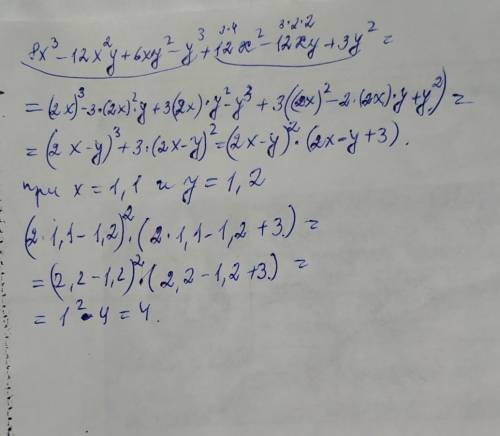 3·4 3·2·2
8x³ - 12x²y + 6xy² - y³ + 12x² - 12xy + 3y² =
= (2x)³ - 3·(2x)²·y + 3(2x)·y² - y³ + 3((2x)² - 2·(2x)·y + y²) =
= (2x - y)³ + 3·(2x - y)² = (2x - y)²·(2x - y + 3).
при x = 1,1 и y = 1,2
(2·1,1 - 1,2)²·(2·1,1 - 1,2 + 3) =
= (2,2 - 1,2)²·(2,2 - 1,2 + 3) =
= 1²·4 = 4.